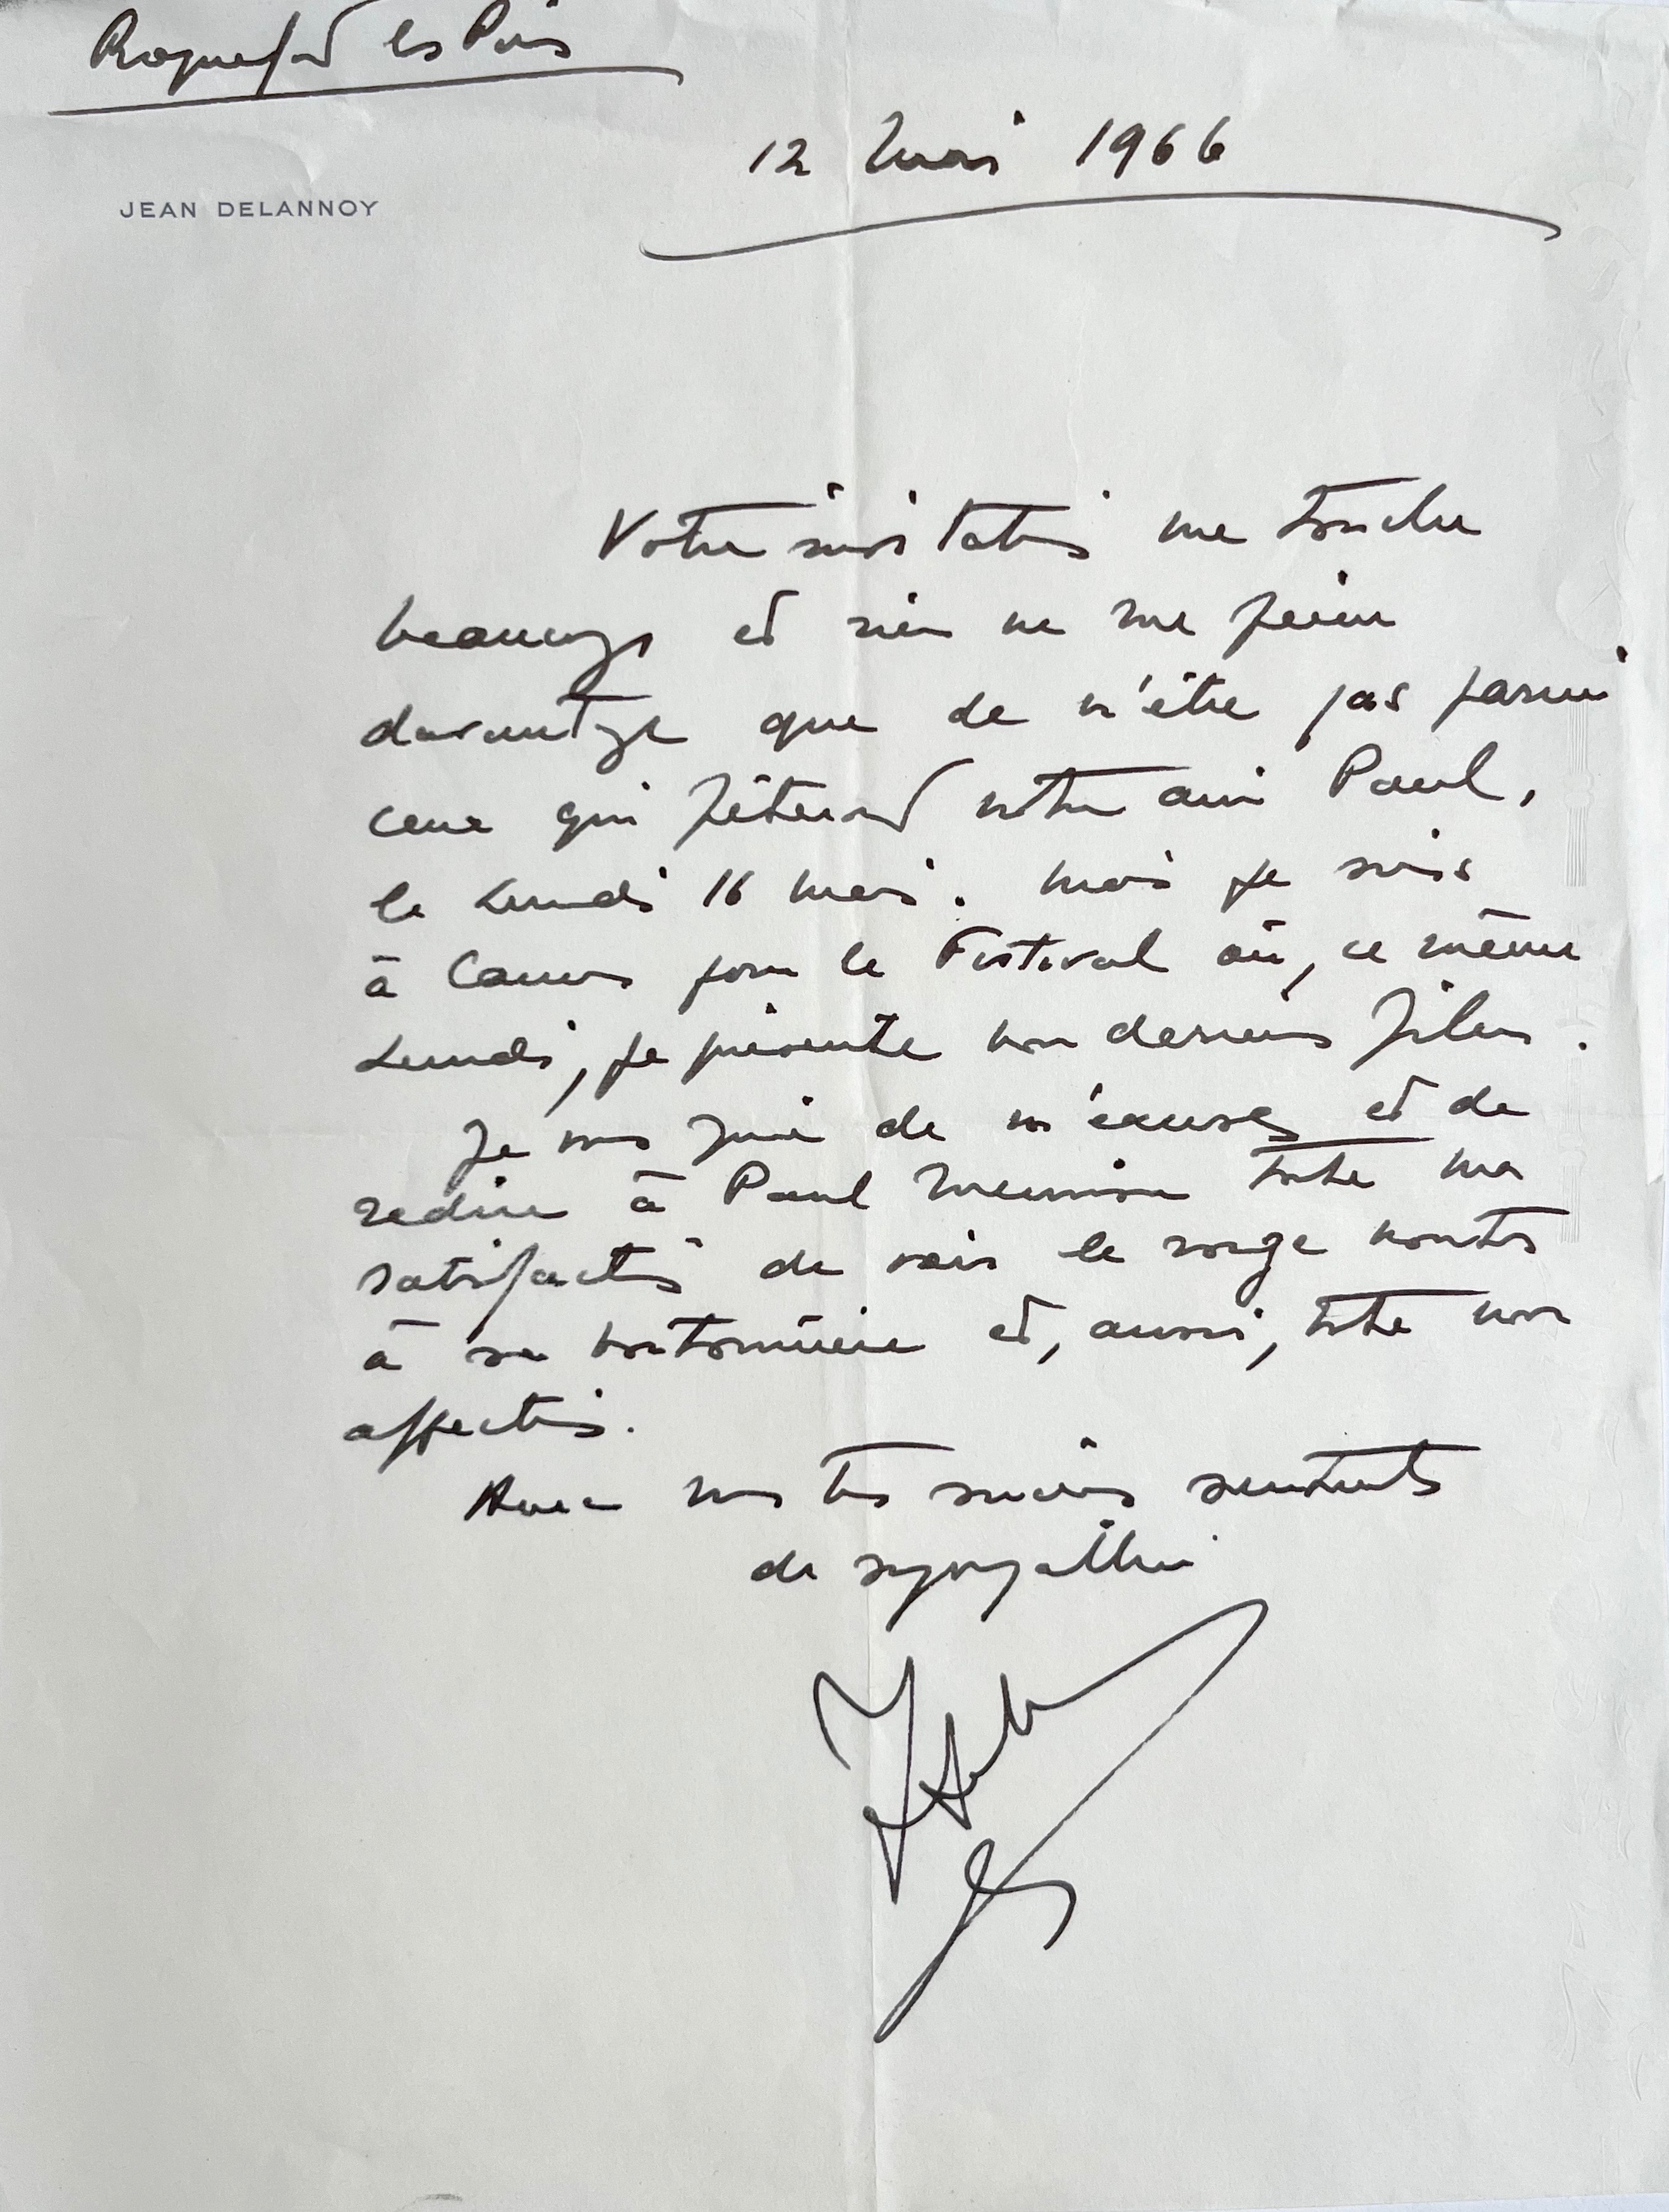 Roquefort les Pins
12 mai 1966
JEAN DELANNOY
Votre invitation me touche
beaucoup et rien ne me peine
davantage que de n'être pas parmi
ceux qui fêteront notre ami Paul,
le Lundi 16 mai. Mais je suis
à Cannes pour le Festival où, ce même
Lundi, je présente mon dernier film.
Je vous prie de m'excuser et de
redire à Paul toute ma
satisfaction de voir le rouge monter
à sa boutonnière et, aussi, toute mon
affection.
Avec mes très sincères sentiments
de sympathie